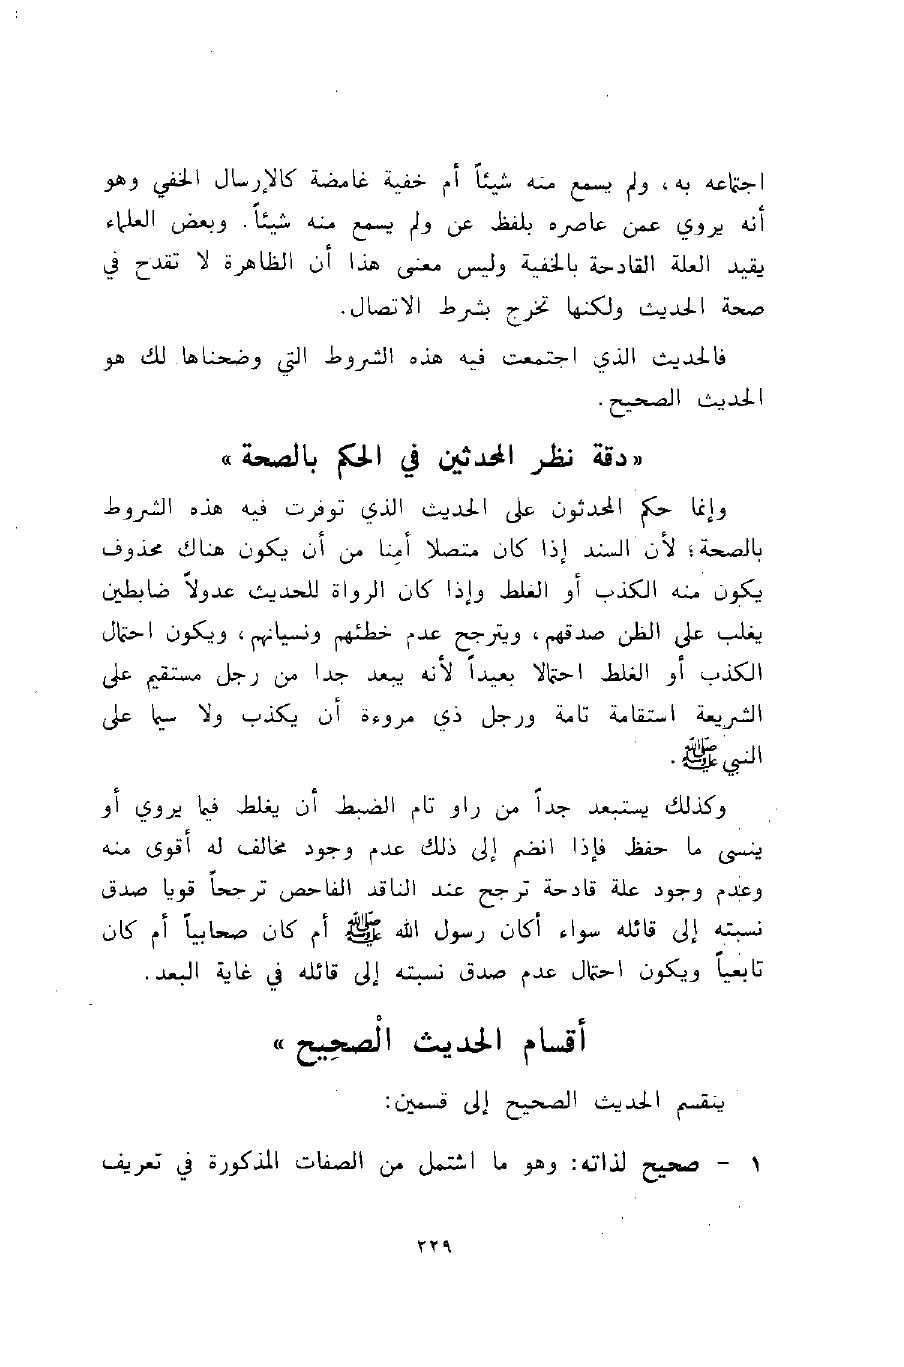 اجتماعه به، ولم يسمع منه شيئاً أم خفية غامضة كالإرسال الخفي وهو
أنه يروي عمن عاصره بلفظ عن ولم يسمع منه شيئاً. وبعض العلماء
يقيد العلة القادحة بالخفية وليس معنى هذا أن الظاهرة لا تقدح في
صحة الحديث ولكنها تخرج بشرط الاتصال.
فالحديث الذي اجتمعت فيه هذه الشروط التي وضحناها لك هو
الحديث الصحيح.
«دقة نظر المحدثين في الحكم بالصحة»
وإنما حكم المحدثون على الحديث الذي توفرت فيه هذه الشروط
بالصحة؛ لأن السند إذا كان متصلا أمِنا من أن يكون هناك محذوف
يكون منه الكذب أو الغلط وإذا كان الرواة للحديث عدولاً ضابطين
يغلب على الظن صدقهم، ويترجح عدم خطئهم ونسيانهم، ويكون احتمال
الكذب أو الغلط احتمالا بعيداً لأنه يبعد جدا من رجل مستقيم على
الشريعة استقامة تامة ورجل ذي مروءة أن يكذب ولا سيما على
النبي ﷺ.
وكذلك يستبعد جداً من راو تام الضبط أن يغلط فيما يروي أو
ينسى ما حفظ فإذا انضم إلى ذلك عدم وجود مخالف له أقوى منه
وعدم وجود علة قادحة ترجح عند الناقد الفاحص ترجحاً قويا صدق
نسبته إلى قائله سواء أكان رسول الله ﷺ أم كان صحابياً أم كان
تابعياً ويكون احتمال عدم صدق نسبته إلى قائله في غاية البعد.
أقسام الحديث الْصحِيح»
ينقسم الحديث الصحيح إلى قسمين:
١ - صحيح لذاته: وهو ما اشتمل من الصفات المذكورة في تعريف
٢٢٩